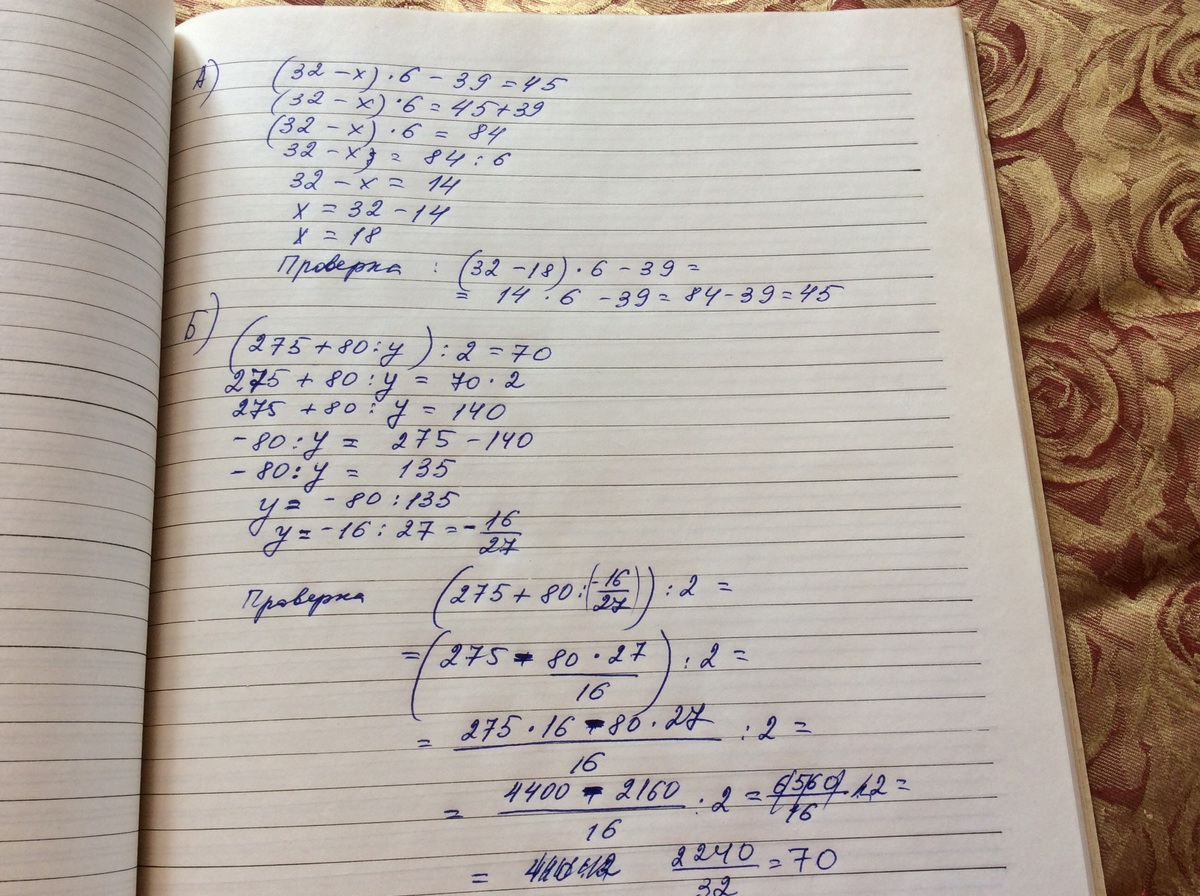 А) (32 - x) · 6 - 39 = 45
(32 - x) · 6 = 45 + 39
(32 - x) · 6 = 84
32 - x = 84 : 6
32 - x = 14
x = 32 - 14
x = 18
Проверка : (32 - 18) · 6 - 39 =
= 14 · 6 - 39 = 84 - 39 = 45
Б)
(275 + 80 : y) : 2 = 70
275 + 80 : y = 70 · 2
275 + 80 : y = 140
- 80 : y = 275 - 140
- 80 : y = 135
y = - 80 : 135
y = - 16 : 27 = - 16/27
Проверка (275 + 80 : (-16/27)) : 2 =
= (275 - 80 · 27/16) : 2 =
= 275 · 16 - 80 · 27/16 : 2 =
= 4400 - 2160/16 : 2 = 6560/16 : 2 =
= 2240/32 = 70